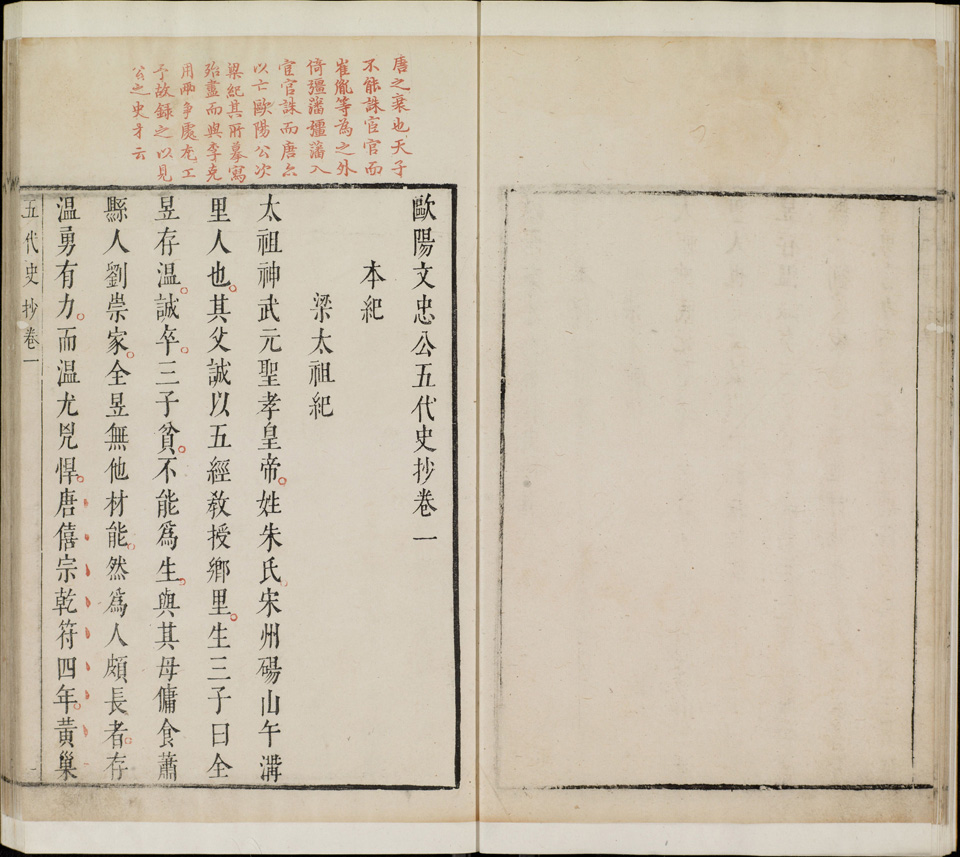 唐之衰也天子
不能誅宦官而
崔胤等為之外
倚彊藩彊藩入
宦官誅而唐亦
以亡歐陽公次
梁紀其所摹寫
殆盡而與李克
用兩爭處尤工
予故録之以見
公之史才云
歐陽文忠公五代史抄卷一
本紀
梁太祖紀
太祖神武元聖孝皇帝姓朱氏宋州碭山午溝
里人也其父誠以五經教授鄉里生三子曰全
昱存溫誠卒三子貧不能爲生與其母傭食蕭
縣人劉崇家全昱無他材能然爲人頗長者存
溫勇有力而溫尤兇悍唐僖宗乾符四年黃巢
五代史抄卷一
一